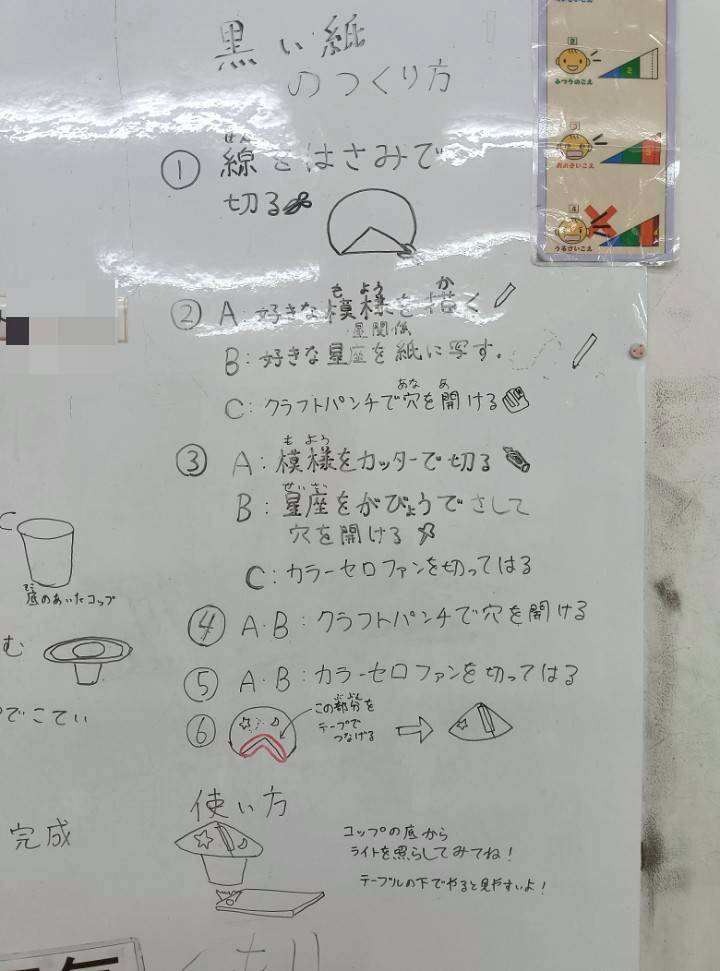 黒い紙
のつくり方
① 線をはさみで
せん
切る
② A:好きな模様を描く
もよう か
星関係
B:好きな星座を紙に写す。
あな あ
C:クラフトパンチで穴を開ける
もよう
③ A:模様をカッターで切る
せいざ
B:星座をがびょうでさして
穴を開ける
C:カラーセロファンを切ってはる
④ A・B:クラフトパンチで穴を開ける
⑤ A・B:カラーセロファンを切ってはる
⑥
この部分を
ぶぶん
テープで
つなげる
使い方
コップの底から
ライトを照らしてみてね!
テーブルの下でやると見やすいよ!
底のあいたコップ
そこ
む
でこてい
完成
2
ふつうのこえ
3
おおきいこえ
4
うるさいこえ